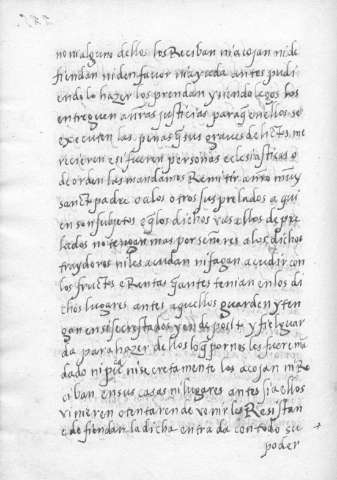 no alguno dellos los Reciban ni acojan ni de
fiendan ni den fauor ni ayuda antes pudi
endo lo hazer los prendan y siendo legos los
entreguen a n̄ras justicias para q̄ en ellos se
executen las penas q̄ sus graues delictos me
recieren e si fueren personas eclesiasticas o
de orden las mandamos Remitir a n̄ro muy
sancto padre o a los otros sus prelados a qui
en son subjetos e q̄ los dichos vasallos de pre
lados no tengan mas por señores a los dichos
traydores ni les acudan ni fagan acudir con
los fructos e Rentas q̄ antes tenian en los di
chos lugares antes aquellos guarden y ten
gan en si secrestados y en deposito y fiel guar
da para hazer dellos lo q̄ por nos les fuere man
dado ni pu^ca ni secretamente los acojan ni Re
ciban en sus casas ni lugares antes si a ellos
vinieren o tentaren de venir les Resistan
e defiendan la dicha entrada con todo su
poder